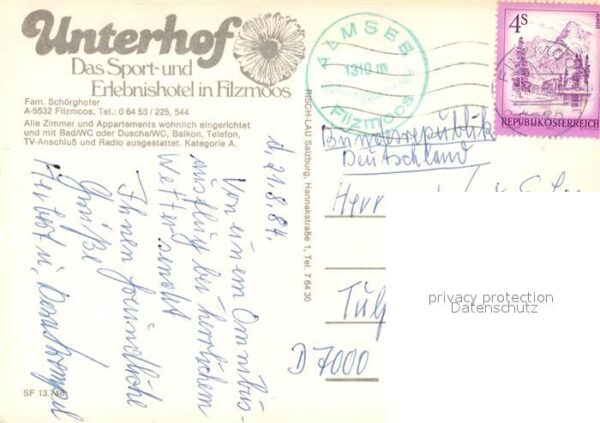 Unterhof
Das Sport- und
Erlebnishotel in Filzmoos
Fam. Schörghofer
A-5532 Filzmoos, Tel.: 0 64 53 / 225, 544
Alle Zimmer und Appartements wohnlich eingerichtet
und mit Bad/WC oder Dusche/WC, Balkon, Telefon,
TV-Anschluß und Radio ausgestattet. Kategorie A.
d 21.8.84.
Von einem Omnibus-
ausflug bei herrlichem
Wetter sendet
Ihnen freundliche
Grüße
SF 13.748
RISCH-LAU Salzburg, Hannakstraße 1, Tel. 7 64 30
ALMSEE
1310 m
Filzmoos
4S
REPUBLIK ÖSTERREICH
Bundesrepublik
Deutschland
Herr
D 7000
privacy protection
Datenschutz